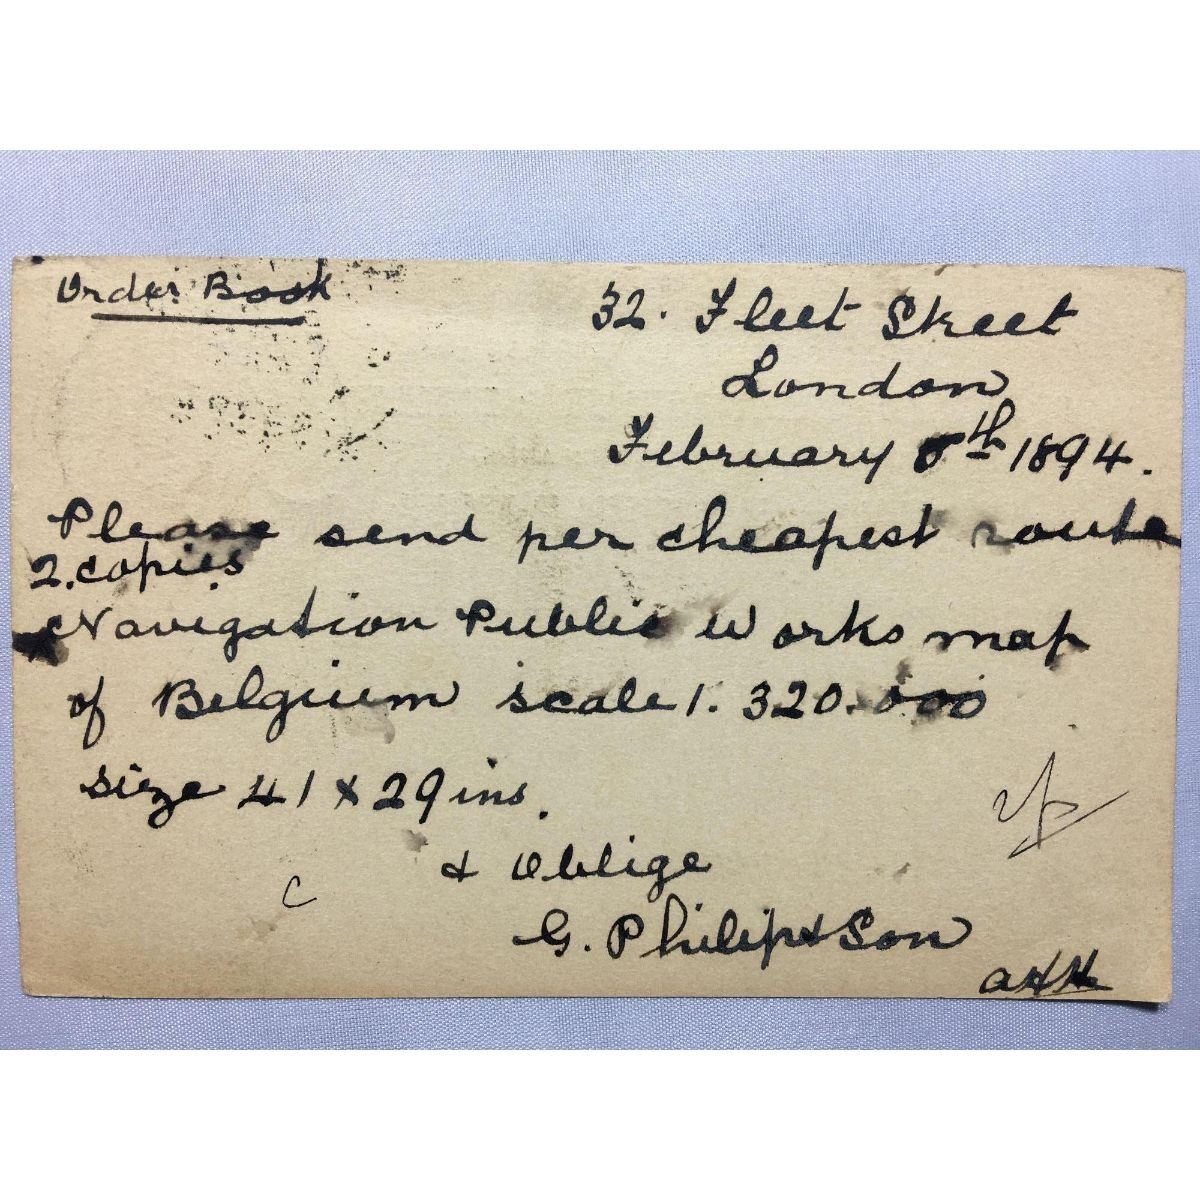 Order Book
32. Fleet Street
London
February 8th 1894.
Please send per cheapest route
2. copies
Navigation Public Works map
of Belgium scale 1. 320.000
size 41 x 29 ins.
& Oblige
G. Philip & Son